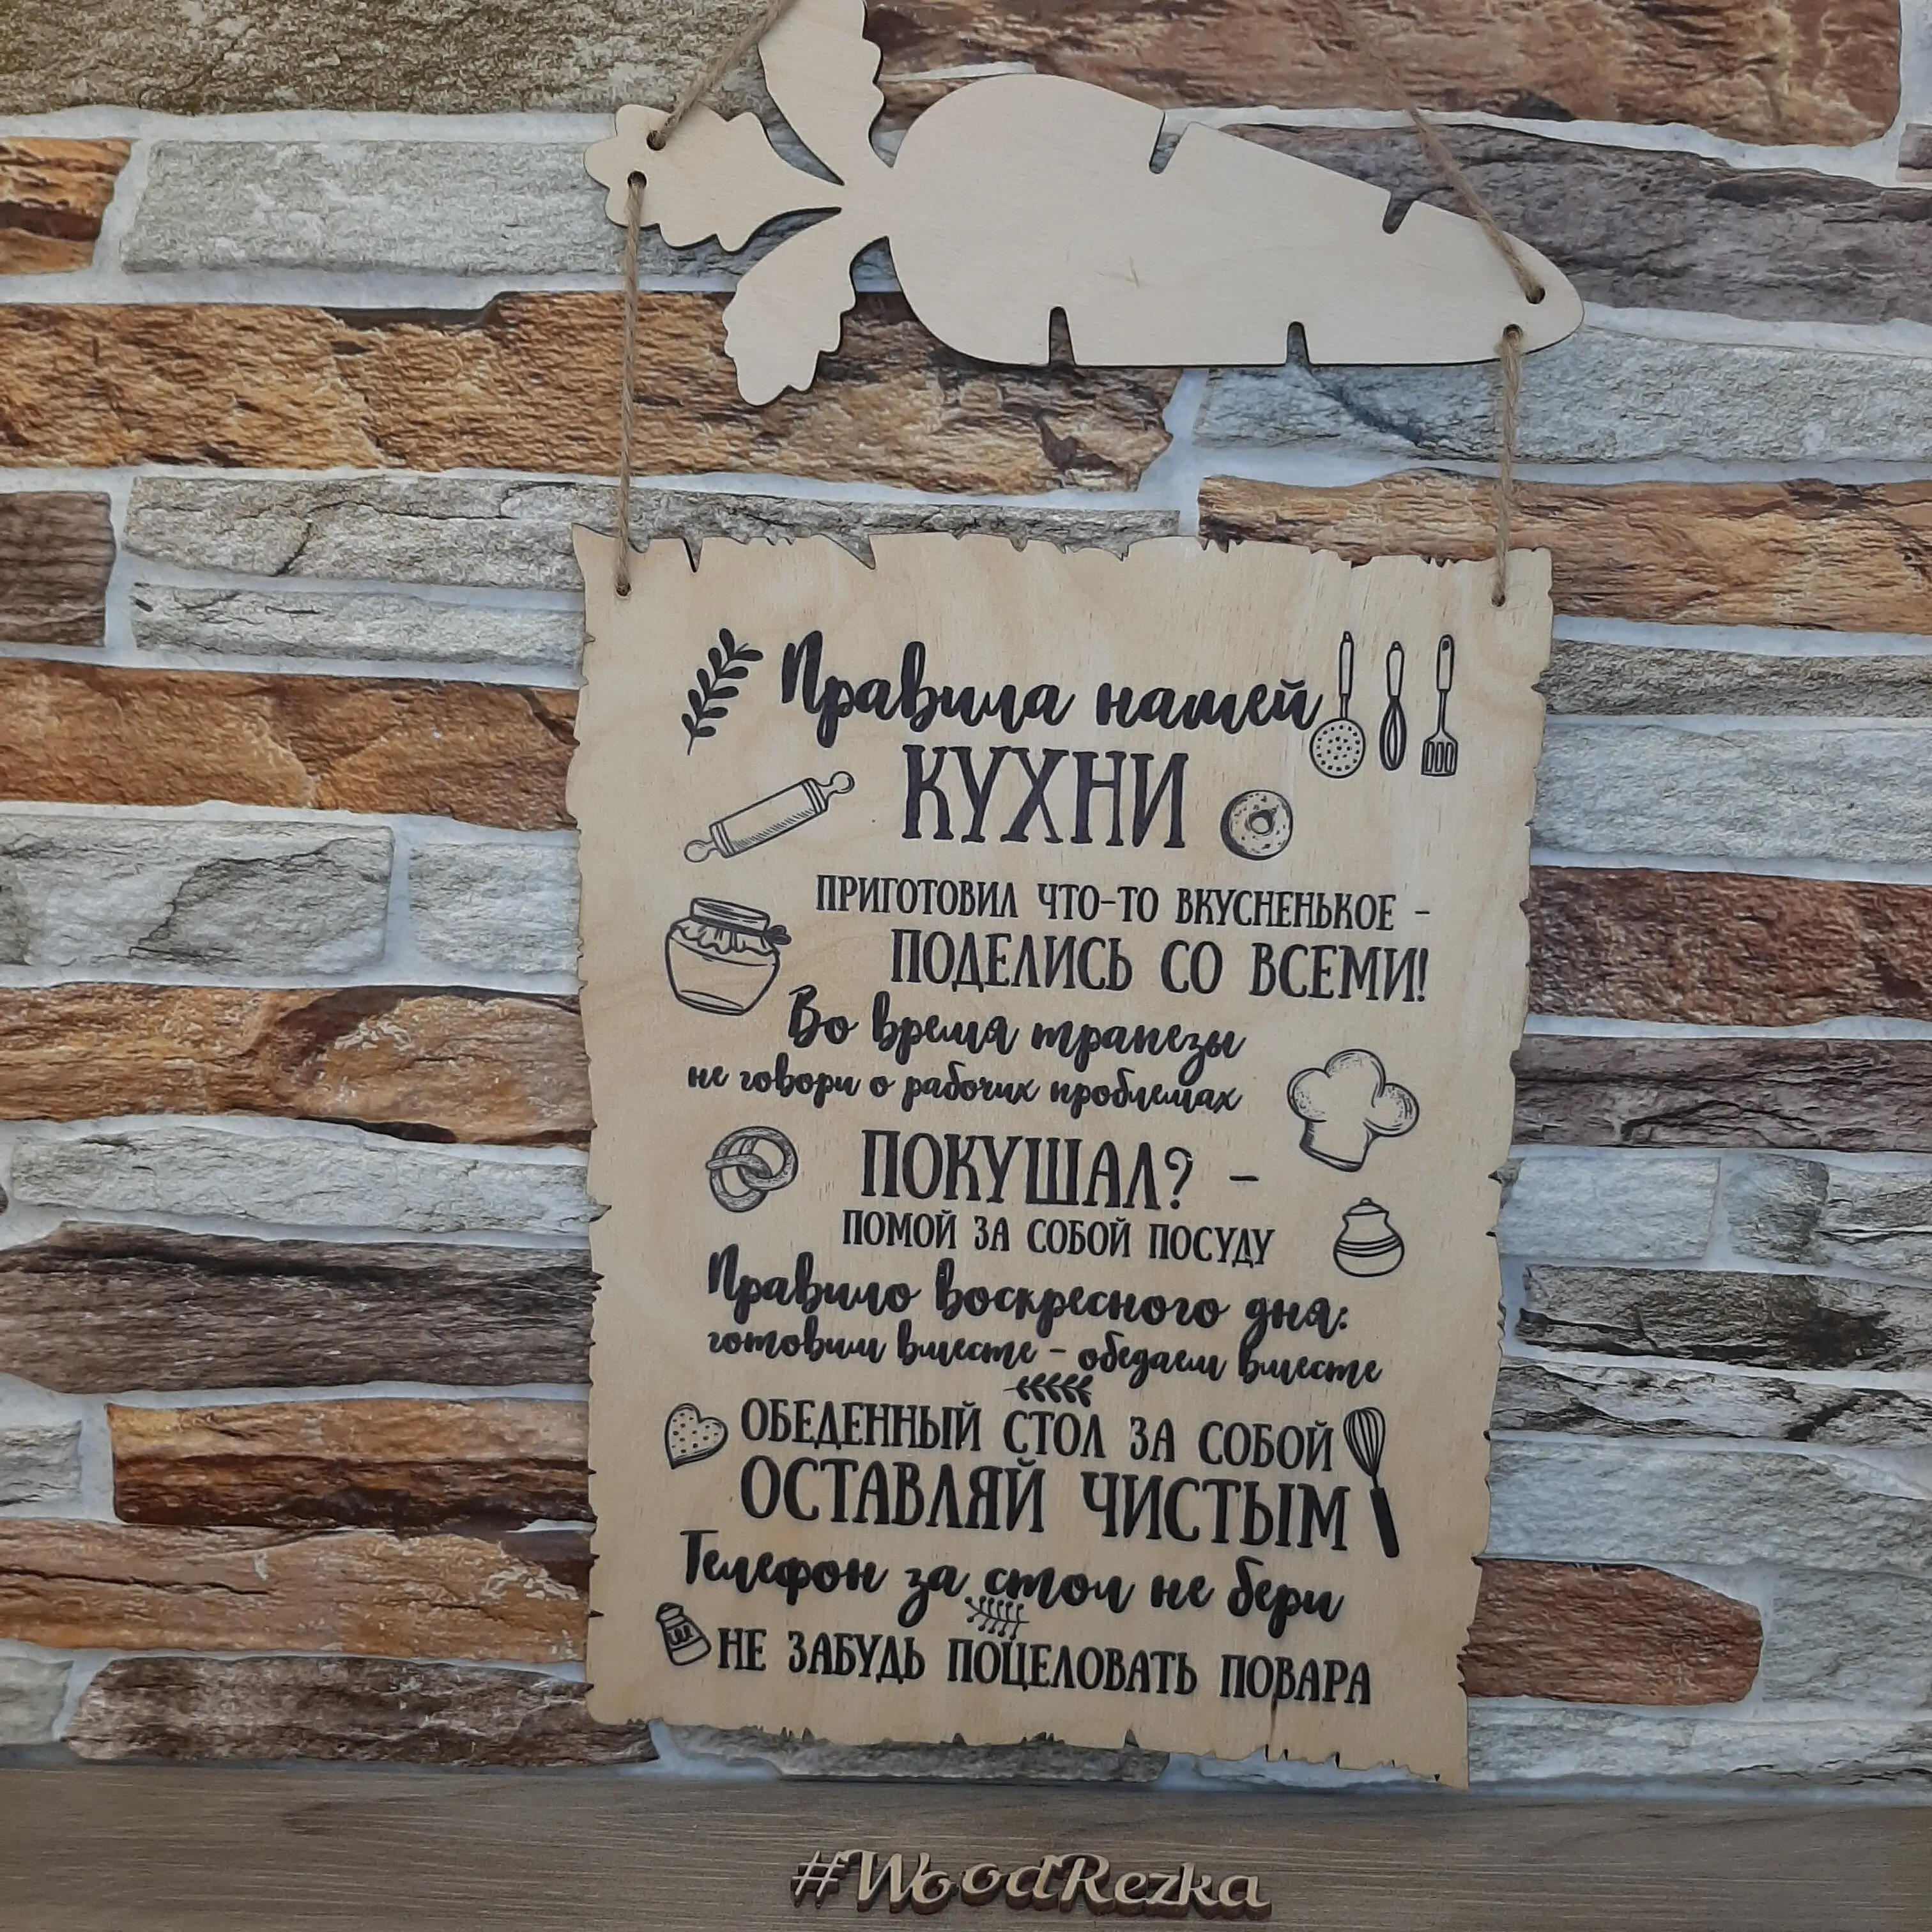 Правила нашей
КУХНИ
ПРИГОТОВИЛ ЧТО-ТО ВКУСНЕНЬКОЕ -
ПОДЕЛИСЬ СО ВСЕМИ!
Во время трапезы
не говори о рабочих проблемах
ПОКУШАЛ? -
ПОМОЙ ЗА СОБОЙ ПОСУДУ
Правило воскресного дня:
готовим вместе - обедаем вместе
ОБЕДЕННЫЙ СТОЛ ЗА СОБОЙ
ОСТАВЛЯЙ ЧИСТЫМ
Телефон за стол не бери
НЕ ЗАБУДЬ ПОЦЕЛОВАТЬ ПОВАРА
#WoodRezka